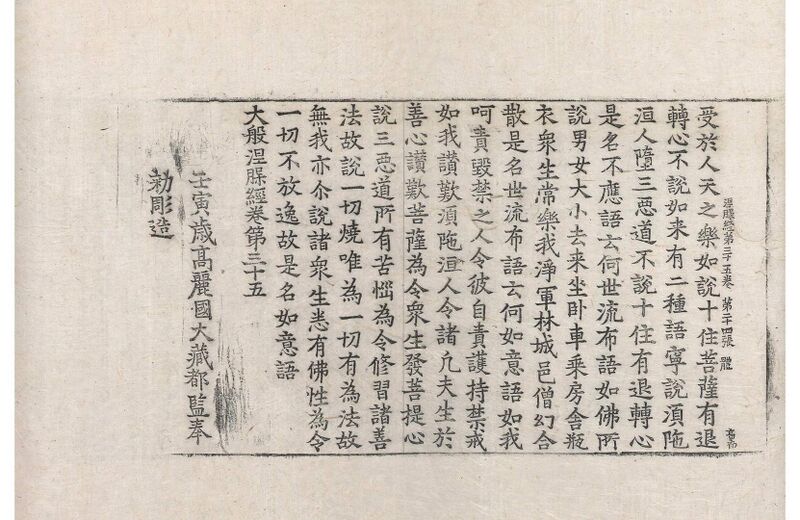 受於人天之樂如說十住菩薩有退
涅槃經第三十五卷 第二十四張 體
轉心不說如来有二種語寧說湏陁
洹人墮三惡道不說十住有退轉心
是名不應語云何世流布語如佛所
說男女大小去来坐卧車乘房舍瓶
衣衆生常樂我淨軍林城邑僧幻合
散是名世流布語云何如意語如我
呵責毀禁之人令彼自責護持禁戒
如我讃歎湏陁洹人令諸凡夫生於
善心讃歎菩薩為令衆生發菩提心
說三惡道所有苦惱為令修習諸善
法故說一切燒唯為一切有為法故
無我亦尒說諸衆生悉有佛性為令
一切不放逸故是名如意語
大般涅槃經卷第三十五
壬寅歲高麗國大藏都監奉
勑彫造